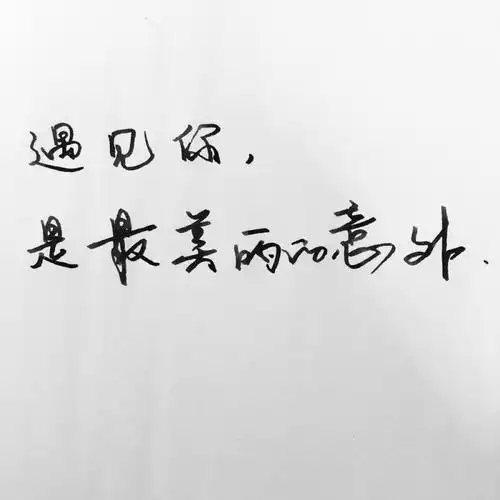 遇见你，
是最美丽的意外.